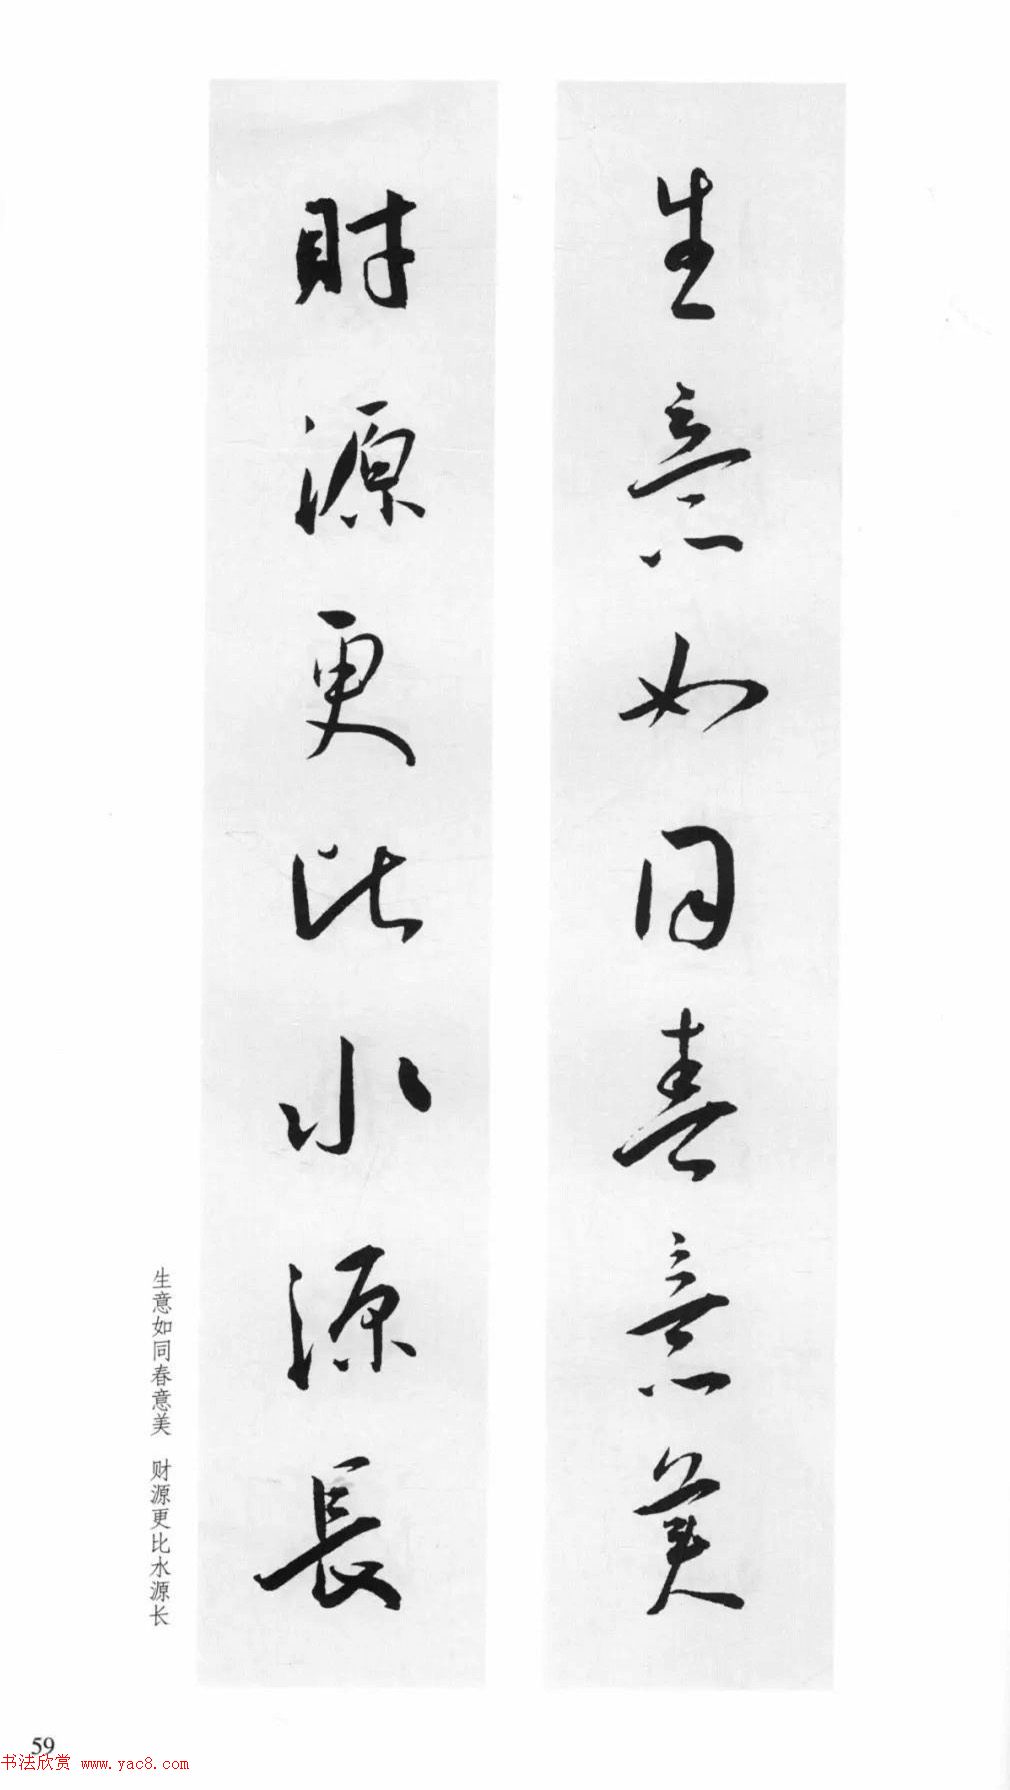 生意如同春意美
財源更比水源長
生意如同春意美 财源更比水源长
59
书法欣赏 www.yac8.com